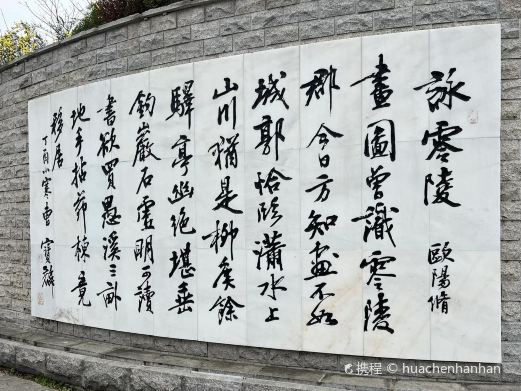 詠零陵
歐陽脩
畫圖曾識零陵
郡今日方知畫不如
城郭恰臨瀟水上
山川猶是柳侯餘
驛亭幽絕堪垂
釣巖石虛明可讀
書欲買愚溪三畝
地手拈茆棟竟
移居
丁酉小寒書 寶麟
携程 @ huachenhanhan